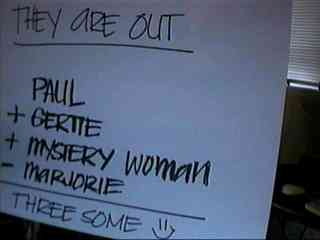 THEY ARE OUT
PAUL
+ GERTIE
+ MYSTERY WOMAN
- MARJORIE
THREE SOME